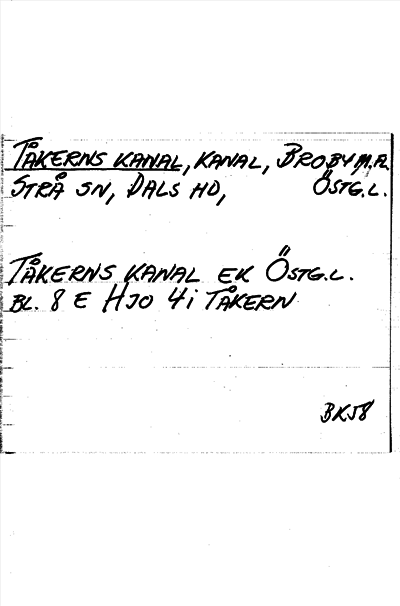 TÅKERNS KANAL, KANAL, BROBY M.FL.
STRÅ SN, DALS HD, ÖSTG.L.
TÅKERNS KANAL EK ÖSTG.L.
BL. 8 E HJO 4 i TÅKERN
BKJ8